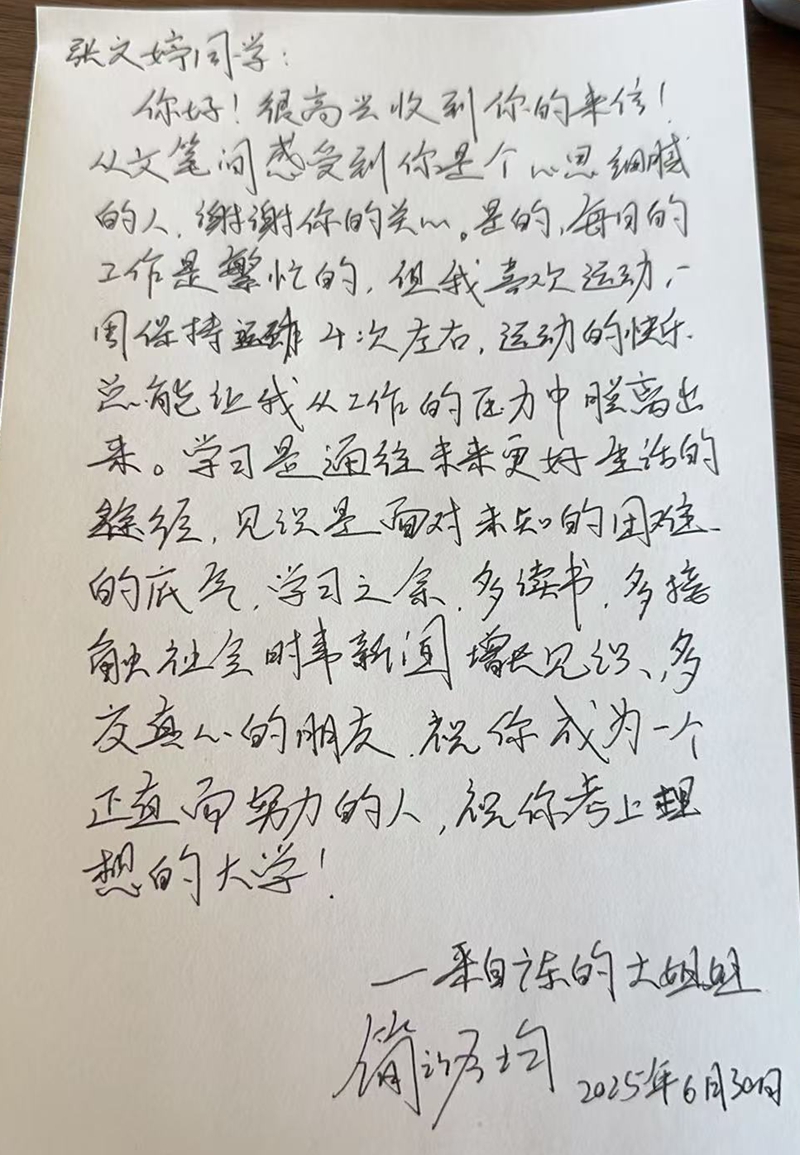 张文婷同学：
你好！很高兴收到你的来信！
从文笔间感受到你是个心思细腻
的人，谢谢你的关心。是的，每日的
工作是繁忙的，但我喜欢运动，一
周保持运动 4次左右，运动的快乐
总能让我从工作的压力中脱离出
来。学习是通往未来更好生活的
途径，见识是面对未知的困难
的底气，学习之余，多读书，多接
触社会时事新闻增长见识、多
交真心的朋友，祝你成为一个
正直而努力的人，祝你考上理
想的大学！
—来自广东的大姐姐
简 均
2025年6月30日